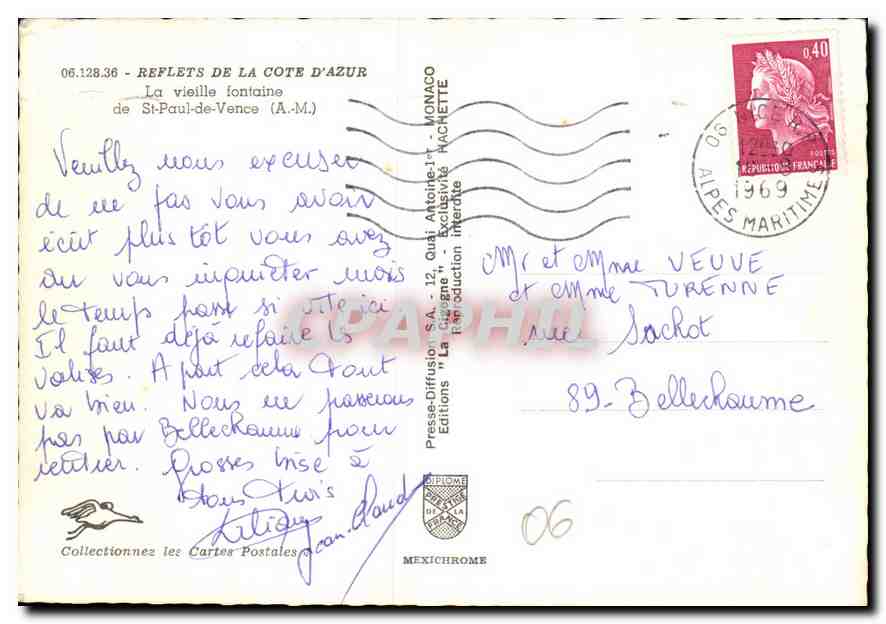 06.128.36 - REFLETS DE LA COTE D'AZUR
La vieille fontaine
de St-Paul-de-Vence (A.-M.)
Veuillez nous excuser
de ne pas vous avoir
écrit plus tôt vous avez
du vous inquiéter mais
le temps passe si vite ici
Il faut déjà refaire les
valises. A part cela tout
va bien. Nous ne passerons
pas par Bellechaume pour
rentrer. Grosses bise à
tous trois
Liliane
Jean-Claude
Collectionnez les Cartes Postales
Presse-Diffusion S.A. - 12, Quai Antoine-1er - MONACO
Editions "La Cigogne" - Exclusivité HACHETTE
Reproduction interdite
DIPLOME
PRESTIGE
DE LA
FRANCE
MEXICHROME
0,40
POSTES
REPUBLIQUE FRANÇAISE
06 NICE
1969
ALPES MARITIMES
Mr et Mme VEUVE
et Mme TURENNE
rue Sachot
89-Bellechaume
06
CPAPHIL